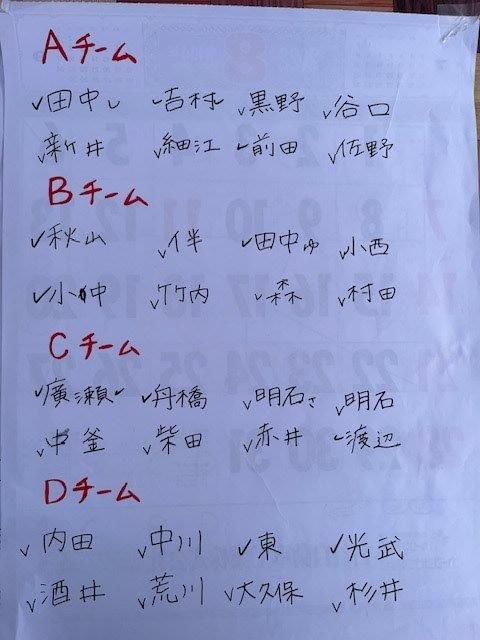 Aチーム
✓田中し ✓吉村 ✓黒野 ✓谷口
✓新井 ✓細江 ✓前田 ✓佐野
Bチーム
✓秋山 ✓伴 ✓田中ゆ ✓小西
✓小中 ✓竹内 ✓森 ✓村田
Cチーム
✓廣瀬 ✓舟橋 ✓明石さ ✓明石
✓中釜 ✓柴田 ✓赤井 ✓渡辺
Dチーム
✓内田 ✓中川 ✓東 ✓光武
✓酒井 ✓荒川 ✓大久保 ✓杉井